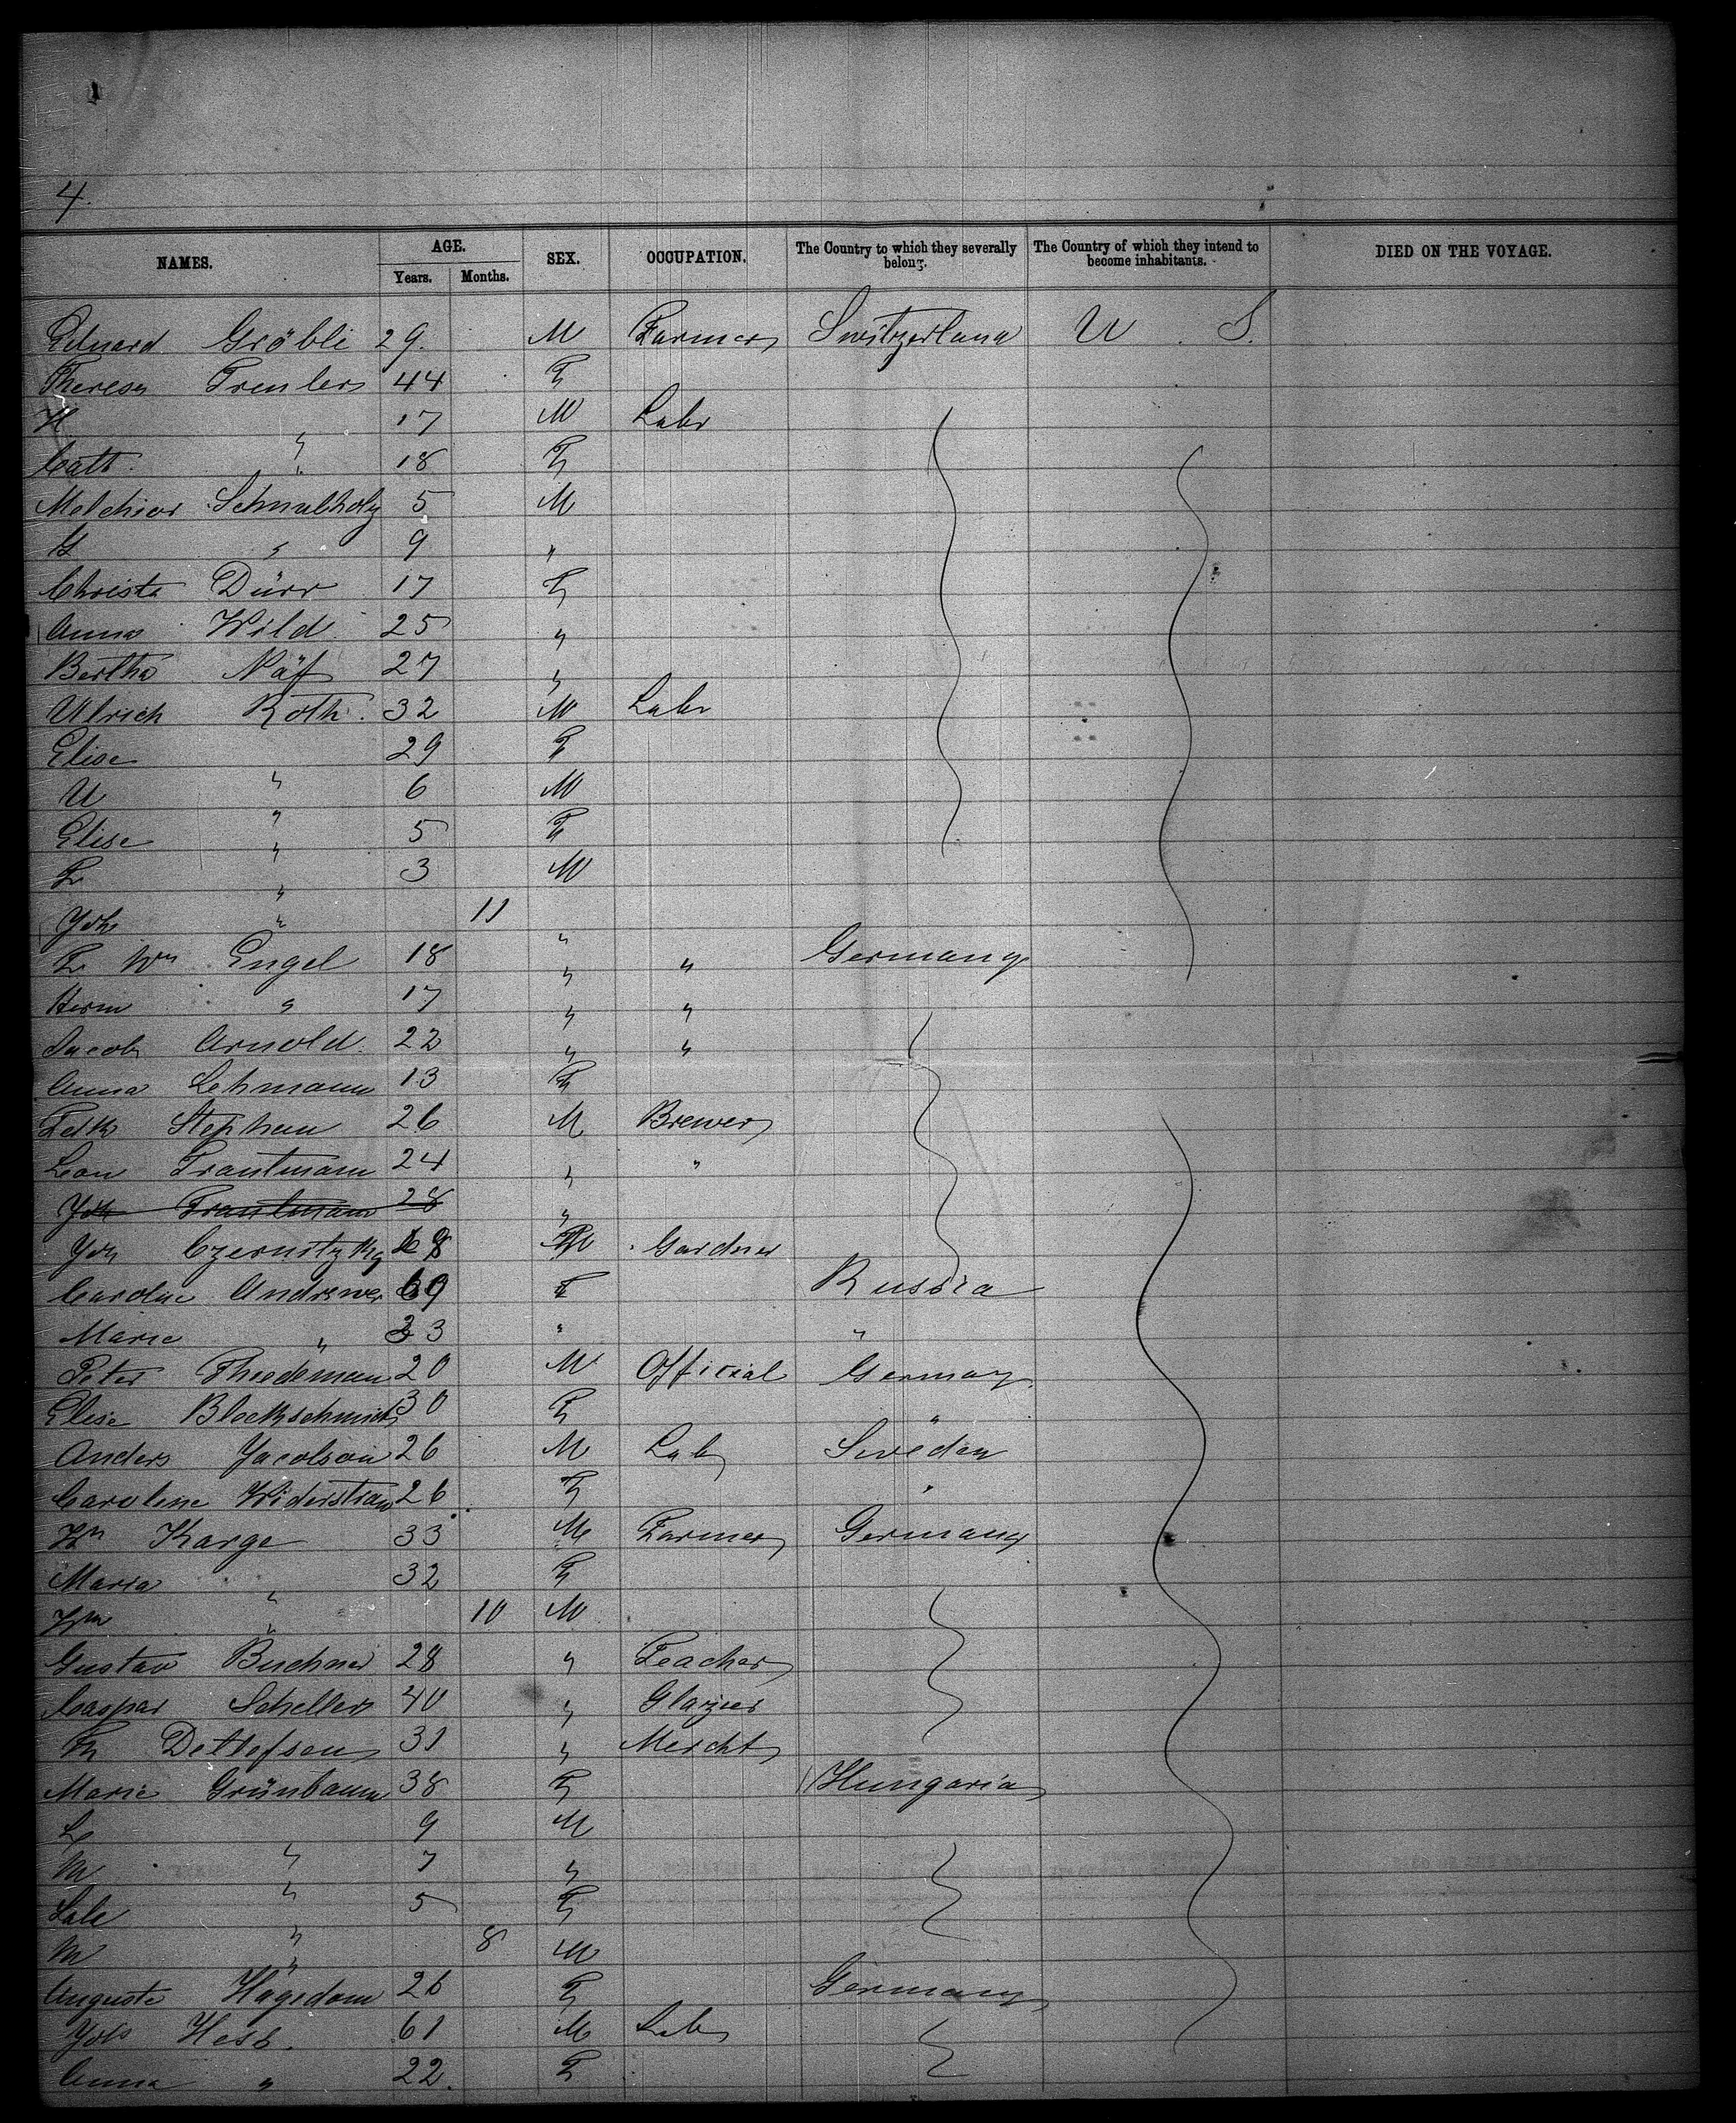 4.
NAMES. AGE. Years. Months. SEX. OCCUPATION. The Country to which they severally belong. The Country of which they intend to become inhabitants. DIED ON THE VOYAGE.
Eduard Gröbli 29. M Farmer Switzerland U. S.
Theresa 44 F
H " 17 M Labr
Cath. " 18 F
Melchior 5 M
G " 9 "
Christa Dürr 17 F
Anna Wild 25 "
Bertha Näf 27 "
Ulrich Roth. 32 M Labr
Elise " 29 F
U " 6 M
Elise " 5 F
F " 3 M
Joh " 11 "
F Wm Engel 18 " " Germany
Herm " 17 " "
Jacob Arnold 22 " "
Anna Lehmann 13 F
Stephan 26 M Brewer
Trautmann 24 " "
Joh Trautmann 28 "
Joh Czernitzky M Gardner
Caroline F Russia
Marie " " "
Peter Thiedemann 20 M Official Germany
Elise Blockschmidt 30 F "
Anders Jacobson 26 M Lab Sweden
Caroline 26 F "
Wm Karge 33 M Farmer Germany
Maria " 32 F
Wm " 10 M
Gustav Buchner 28 " Teacher
Caspar Scheller 40 " Glazier
Detlefsen 31 " Mercht
Marie Grünbaum 38 F Hungaria
L " 9 M
M " 7 "
" 5 F
M " 8 M
Auguste Hagedorn 26 F Germany
Joh Hess. 61 M Lab
Anna " 22. F